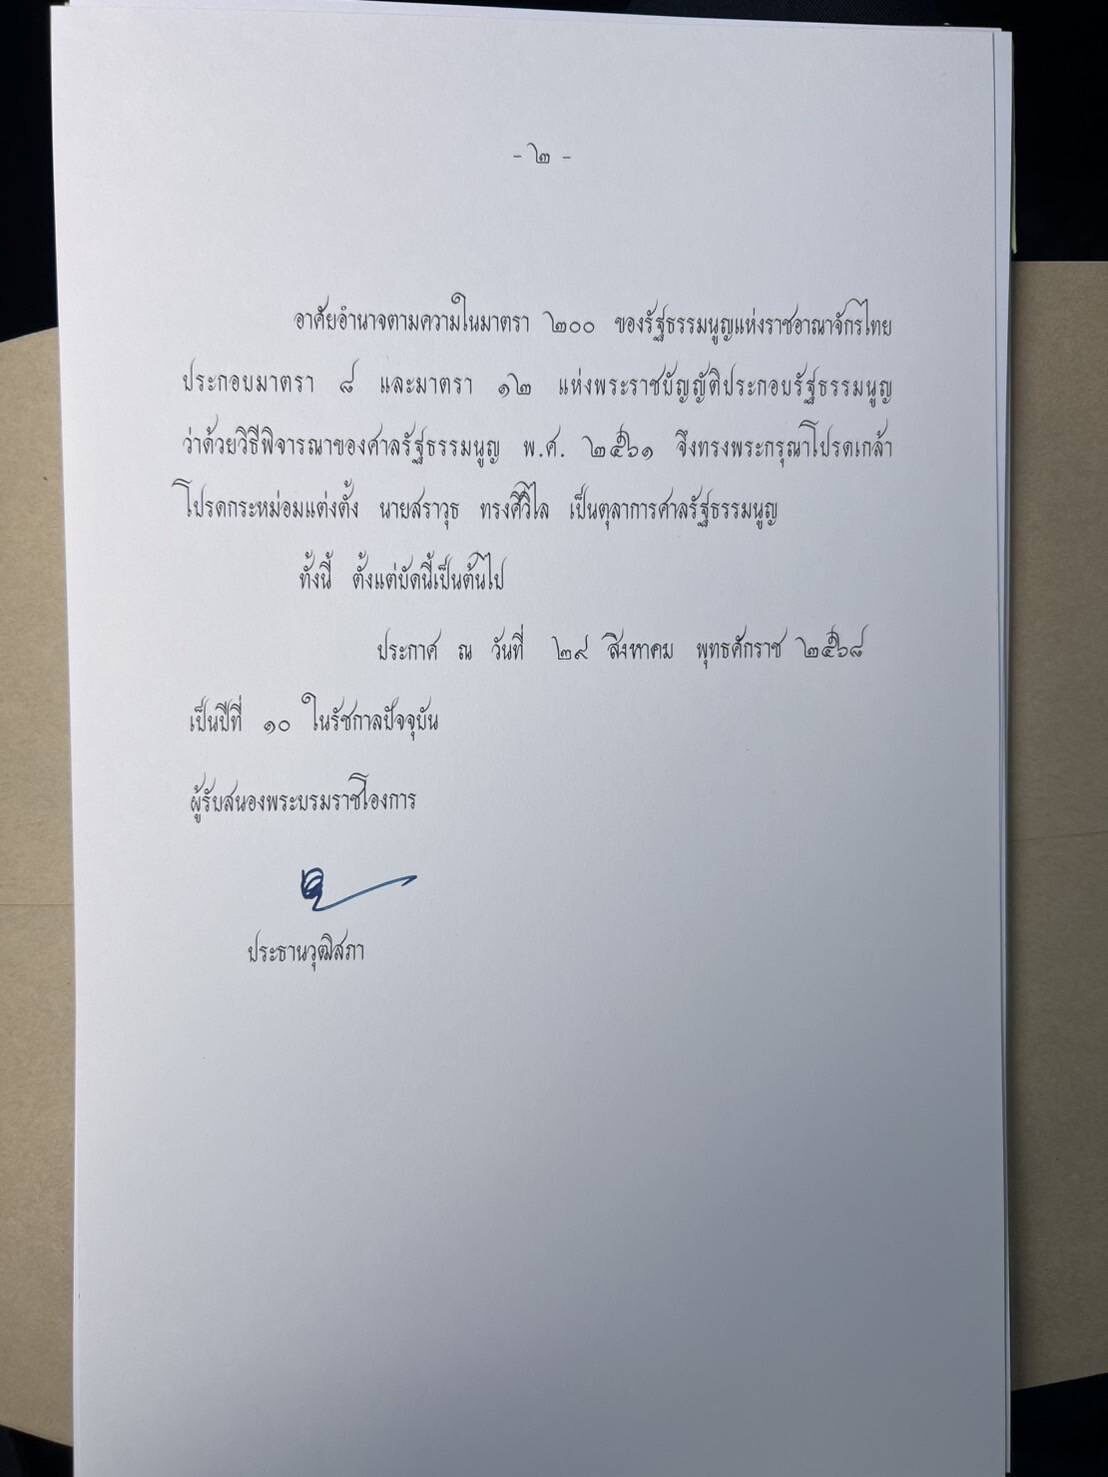 - ๒ -
อาศัยอำนาจตามความในมาตรา ๒๐๐ ของรัฐธรรมนูญแห่งราชอาณาจักรไทย
ประกอบมาตรา ๘ และมาตรา ๑๒ แห่งพระราชบัญญัติประกอบรัฐธรรมนูญ
ว่าด้วยวิธีพิจารณาของศาลรัฐธรรมนูญ พ.ศ. ๒๕๖๑ จึงทรงพระกรุณาโปรดเกล้า
โปรดกระหม่อมแต่งตั้ง นายสราวุธ ทรงศิวิไล เป็นตุลาการศาลรัฐธรรมนูญ
ทั้งนี้ ตั้งแต่บัดนี้เป็นต้นไป
ประกาศ ณ วันที่ ๒๙ สิงหาคม พุทธศักราช ๒๕๖๘
เป็นปีที่ ๑๐ ในรัชกาลปัจจุบัน
ผู้รับสนองพระบรมราชโองการ
ประธานวุฒิสภา